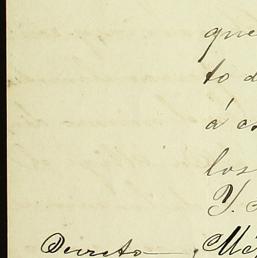 que
to d
á es
los
Y.
Decreto
Mé